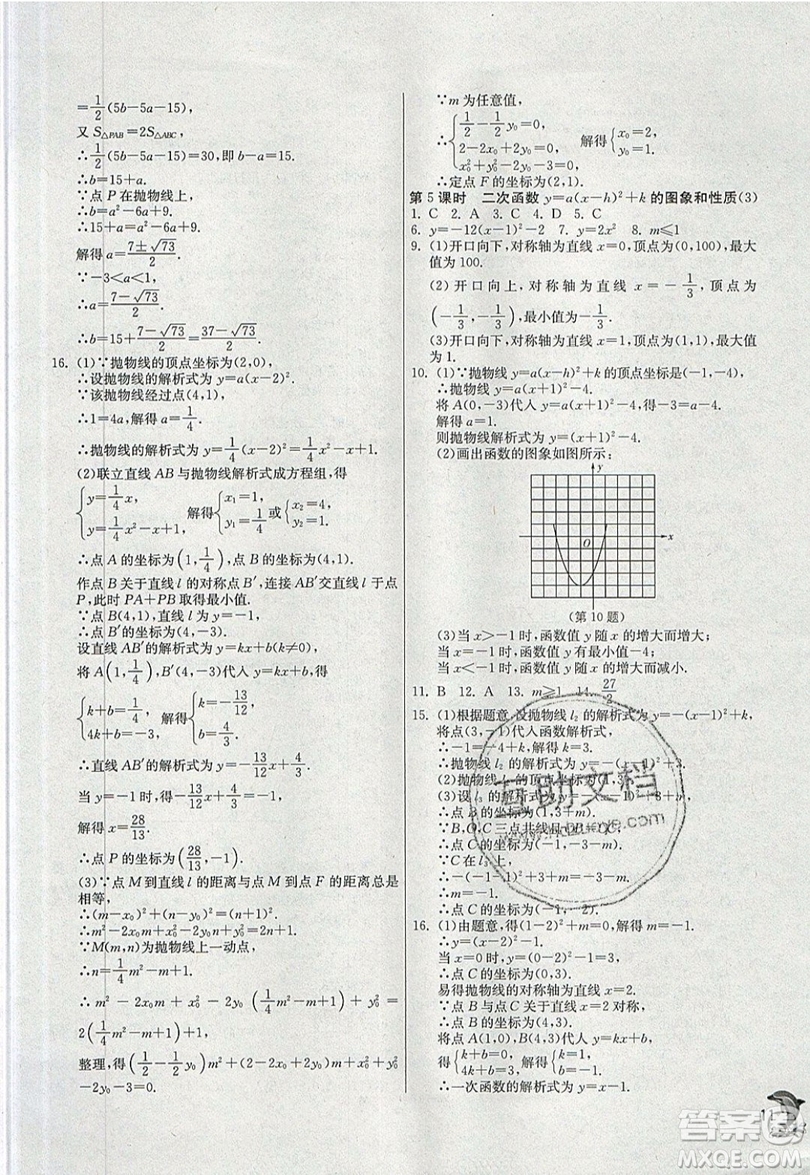 =1/2(5b-5a-15),
又 S△PAB=2S△ABC,
∴1/2(5b-5a-15)=30,即 b-a=15.
∴b=15+a.
∵点 P 在抛物线上,
∴b=a²-6a+9.
∴15+a=a²-6a+9.
解得 a=(7±√73)/2.
∵-3<a<1,
∴a=(7-√73)/2.
∴b=15+(7-√73)/2=(37-√73)/2.
16. (1)∵抛物线的顶点坐标为(2,0),
∴设抛物线的解析式为 y=a(x-2)².
∵该抛物线经过点(4,1),
∴1=4a,解得 a=1/4.
∴抛物线的解析式为 y=1/4(x-2)²=1/4x²-x+1.
(2)联立直线 AB 与抛物线解析式成方程组,得
{y=1/4x, y=1/4x²-x+1, 解得{x₁=1, y₁=1/4 或{x₂=4, y₂=1.
∴点 A 的坐标为(1,1/4),点 B 的坐标为(4,1).
作点 B 关于直线 l 的对称点 B′,连接 AB′交直线 l 于点
P,此时 PA+PB 取得最小值.
∵点 B(4,1),直线 l 为 y=-1,
∴点 B′的坐标为(4,-3).
设直线 AB′的解析式为 y=kx+b,
将 A(1,1/4),B′(4,-3)代入 y=kx+b,得
{k+b=1/4, 4k+b=-3, 解得{k=-13/12, b=4/3.
∴直线 AB′的解析式为 y=-13/12x+4/3.
当 y=-1 时,得-13/12x+4/3=-1,
解得 x=28/13.
∴点 P 的坐标为(28/13,-1).
(3)∵点 M 到直线 l 的距离与点 M 到点 F 的距离总是
相等,
∴(m-x₀)²+(n-y₀)²=(n+1)².
∴m²-2x₀m+x₀²-2y₀n+y₀²=2n+1.
∵M(m,n)为抛物线上一动点,
∴n=1/4m²-m+1.
∴m²-2x₀m+x₀²-2y₀(1/4m²-m+1)+y₀²=
2(1/4m²-m+1)+1,
整理,得(1/2-1/2y₀)m²+(2-2x₀+2y₀)m+x₀²+y₀²
-2y₀-3=0.
∵m 为任意值,
∴{1/2-1/2y₀=0, 2-2x₀+2y₀=0, x₀²+y₀²-2y₀-3=0, 解得{x₀=2, y₀=1.
∴定点 F 的坐标为(2,1).
第 5 课时 二次函数 y=a(x-h)²+k 的图象和性质(3)
1. C 2. A 3. C 4. D 5. C
6. y=-12(x-1)²-2 7. y=2x² 8. m≤1
9. (1)开口向下,对称轴为直线 x=0,顶点为(0,100),最大
值为 100.
(2)开口向上,对称轴为直线 x=-1/3,顶点为
(-1/3,-1/3),最小值为-1/3.
(3)开口向下,对称轴为直线 x=1,顶点为(1,1),最大值
为 1.
10. (1)∵抛物线 y=a(x-h)²+k 的顶点坐标是(-1,-4),
∴抛物线解析式为 y=a(x+1)²-4.
将 A(0,-3)代入 y=a(x+1)²-4,得-3=a-4.
解得 a=1.
则抛物线解析式为 y=(x+1)²-4.
(2)画出函数的图象如图所示:
y
O x
(第 10 题)
(3)当 x>-1 时,函数值 y 随 x 的增大而增大;
当 x=-1 时,函数值 y 有最小值-4;
当 x<-1 时,函数值 y 随 x 的增大而减小.
11. B 12. A 13. m≥1 14. 27/2
15. (1)根据题意,设抛物线 l₂ 的解析式为 y=-(x-1)²+k,
将点(3,-1)代入函数解析式,
∴-1=-4+k,解得 k=3.
(3)设 l₃
∴点 B 的坐标为
∵B,O,C 三点共线且
∴点 C 的坐标为
∵C 在 l₂
∴点 C 的坐标为(-1,
16. (1)由题意,得(1-2)²+m=0,解得 m=-1.
∴y=(x-2)²-1.
当 x=0 时,y=(0-2)²-1=3.
∴点 C 的坐标为(0,3).
易得抛物线的对称轴为直线 x=2.
∵点 B 与点 C 关于直线 x=2 对称,
∴点 B 的坐标为(4,3).
将点 A(1,0),B(4,3)代入 y=kx+b,
得{k+b=0, 4k+b=3, 解得{k=1, b=-1.
∴一次函数的解析式为 y=x-1.
互助文档
答案
MXQE.COM